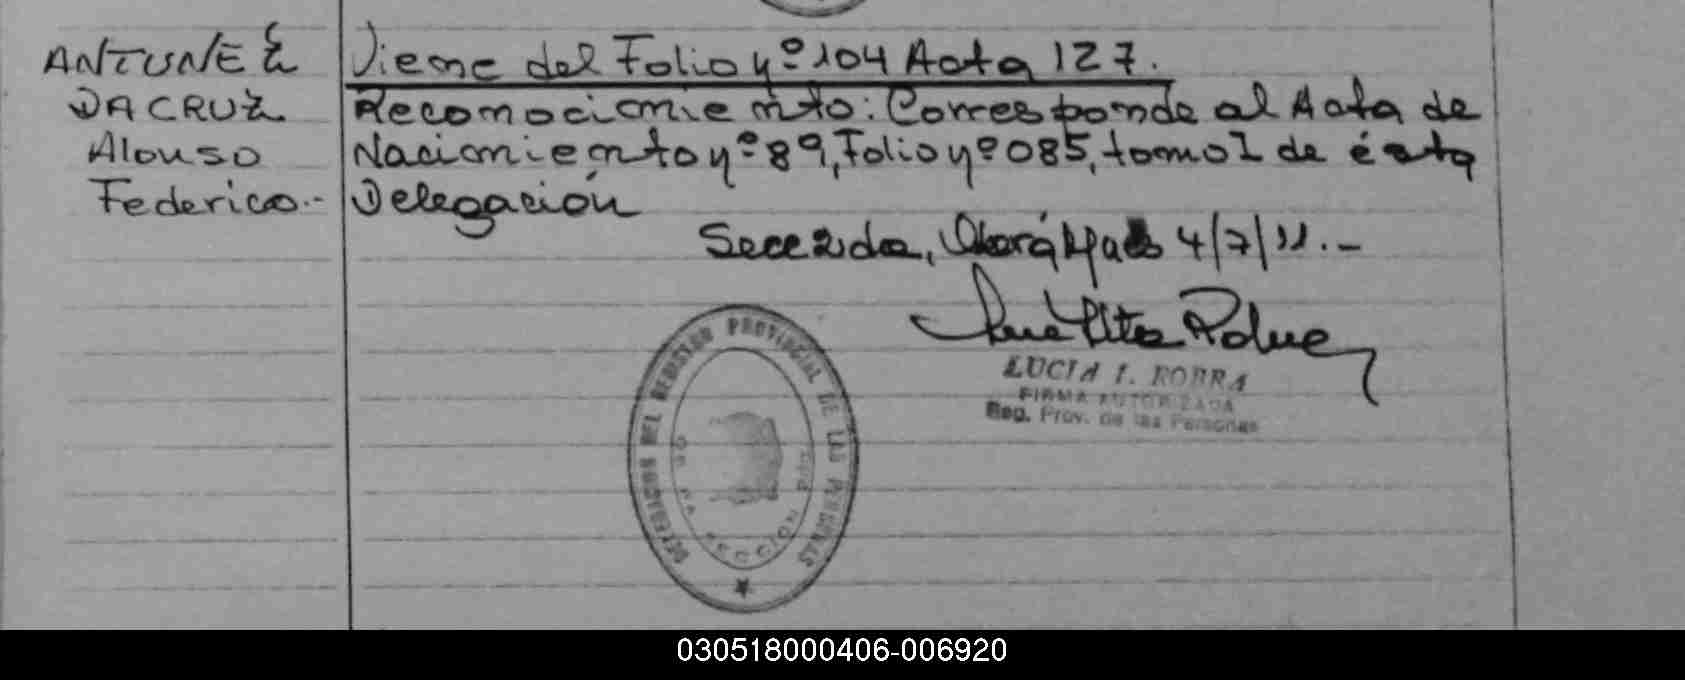 ANTUNEZ
DA CRUZ
Alonso
Federico.-
Viene del Folio nº 104 Acta 127.
Reconocimiento: Corresponde al Acta de
Nacimiento nº 89, Folio nº 085, tomo I de ésta
Delegación
4/7/11.-
LUCIA I. BORRA
FIRMA AUTORIZADA
Reg. Prov. de las Personas
DEL REGISTRO PROVINCIAL DE LAS PERSONAS
030518000406-006920